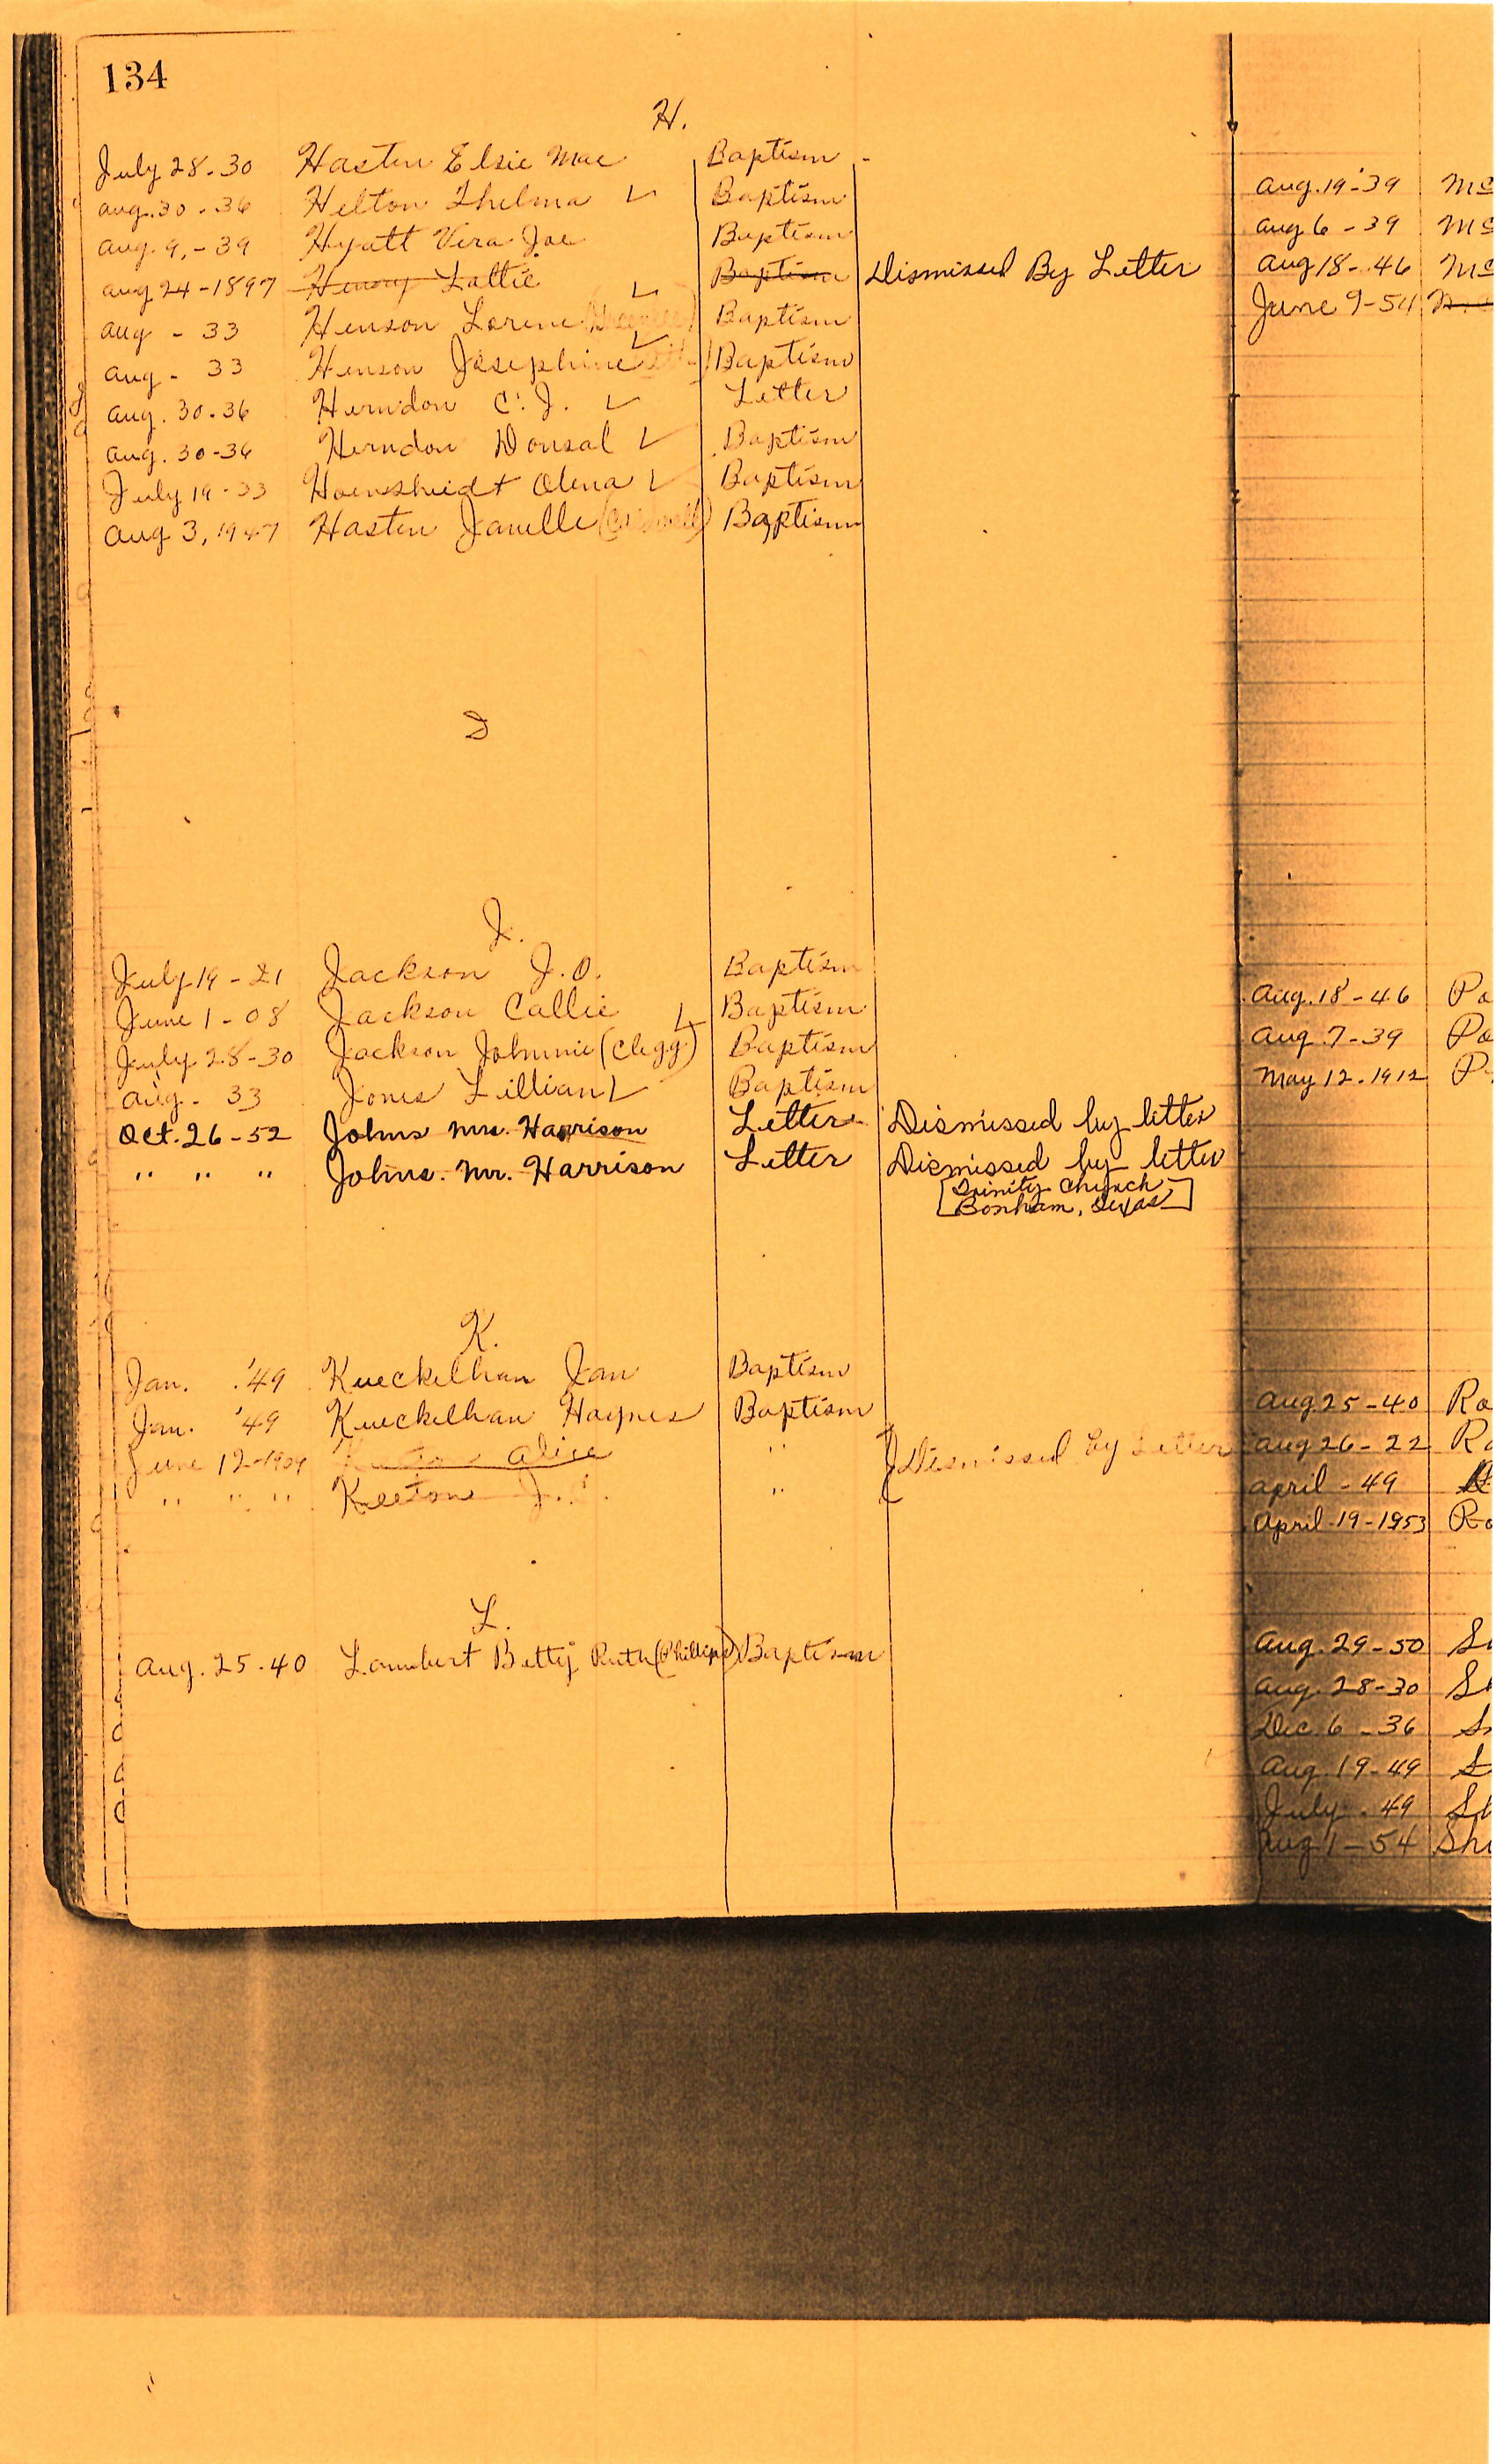 134
H.
July 28-30 Hasten Elsie Mae Baptism
Aug. 30-36 Helton Thelma ✓ Baptism
Aug. 9,-39 Hyatt Vera Joe Baptism
Aug 24-1897 Henson Lottie Baptism Dismissed By Letter
Aug - 33 Henson Lorene ✓ Baptism
Aug - 33 Henson Josephine ✓ Baptism
Aug. 30-36 Herndon C. J. ✓ Letter
Aug. 30-36 Herndon Donsal ✓ Baptism
July 19-33 Hoensheidt Olena ✓ Baptism
Aug 3, 1947 Hasten Janelle Baptism
I
J.
July 19-21 Jackson J.O. Baptism
June 1-08 Jackson Callie Baptism
July 28-30 Jackson Johnnie (Clegg) ✓ Baptism
Aug. 33 Jones Lillian ✓ Baptism
Oct. 26-52 Johns Mrs. Harrison Letter Dismissed by letter
" " " Johns. Mr. Harrison Letter Dismissed by letter
[Trinity Church
Bonham, Texas]
K.
Jan. '49 Kueckelhan Jan Baptism
Jan. '49 Kueckelhan Haynes Baptism
June 12-1904 Alice " Dismissed by Letter
" " " Keeton J. "
L.
Aug. 25-40 Lambert Betty Ruth (Phillips) Baptism
Aug. 19-39 Mc
Aug 6-39 Mc
Aug 18-46 Mc
June 9-54
Aug. 18-46 Pa
Aug. 7-39 Pa
May 12-1912 P
Aug 25-40 Ra
Aug 26-22 Ra
April-49 R
April-19-1953 Ro
Aug. 29-50 S
Aug. 28-30 S
Dec. 6-36 S
Aug. 19-49 S
July. 49 S
Aug 1-54 Sh